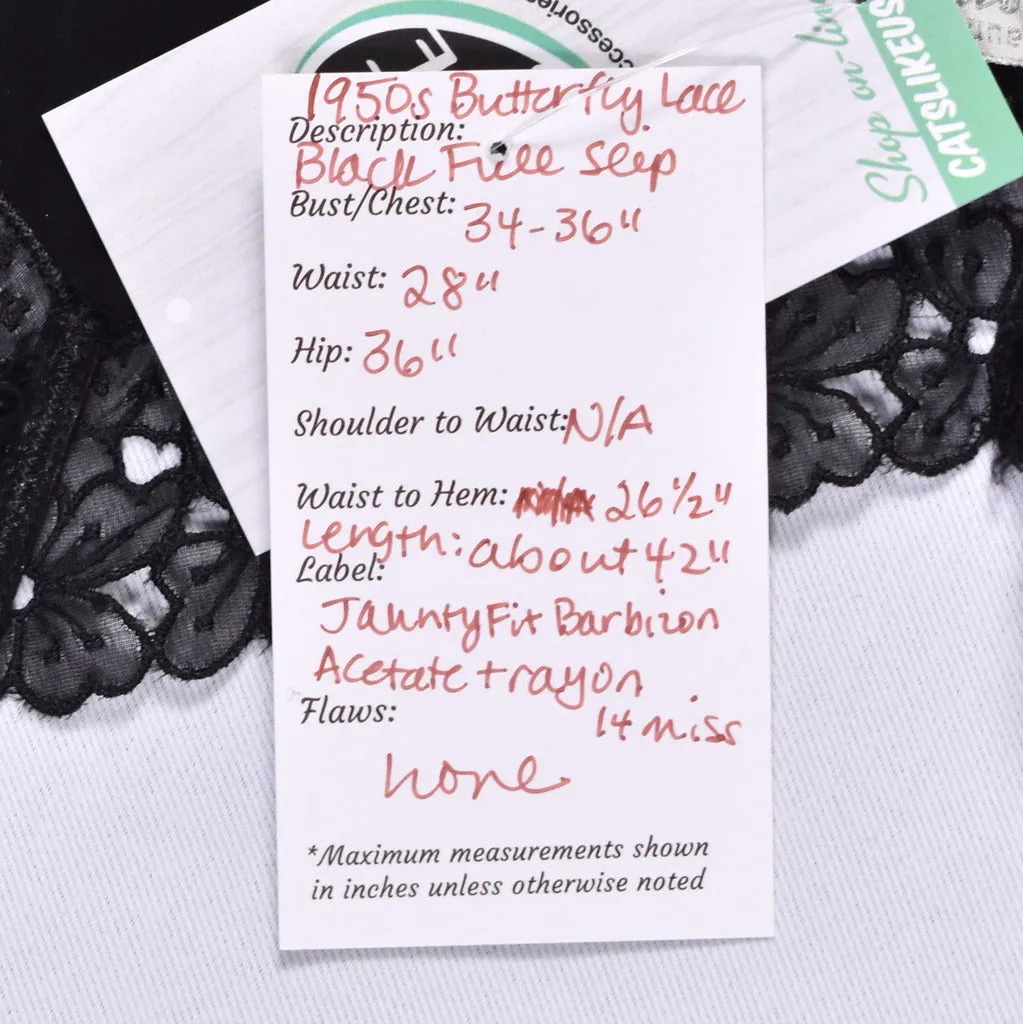 ccessories
Shop on-line
CATSLIKEUS
1950s Butterfly Lace
Description:
Black Full Slip
Bust/Chest: 34-36"
Waist: 28"
Hip: 36"
Shoulder to Waist: N/A
Waist to Hem: 26 1/2"
Length: about 42"
Label:
JauntyFit Barbizon
Acetate + rayon
14 miss
Flaws:
none
*Maximum measurements shown
in inches unless otherwise noted